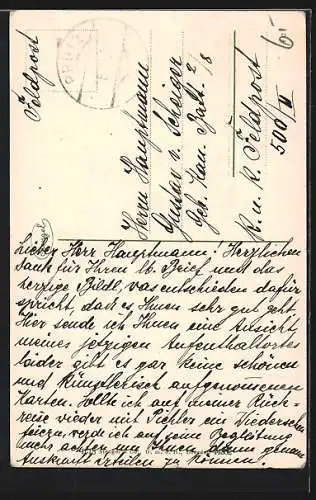 Feldpost
Herrn Hauptmann
Gustav v. Scheiger
Sch. Hau. Batt. 2/8
K. u. K. Feldpost
500/II
Lieber Herr Hauptmann! Herzlichen
Dank für Ihren lb. Brief und das
herzige Bildl, was entschieden dafür
spricht, dass es Ihnen sehr gut geht.
Hier sende ich Ihnen eine Ansicht
meines jetzigen Aufenthaltortes
leider gibt es gar keine schönen
und künstlerisch aufgenommenen
Karten. Sollte ich auf meiner Rück-
reise wieder mit Pichler ein Wiedersehen
feiern, werde ich auf seine Begleitung
mehr achten um Ihnen dann genaue
Auskunft erteilen zu können.